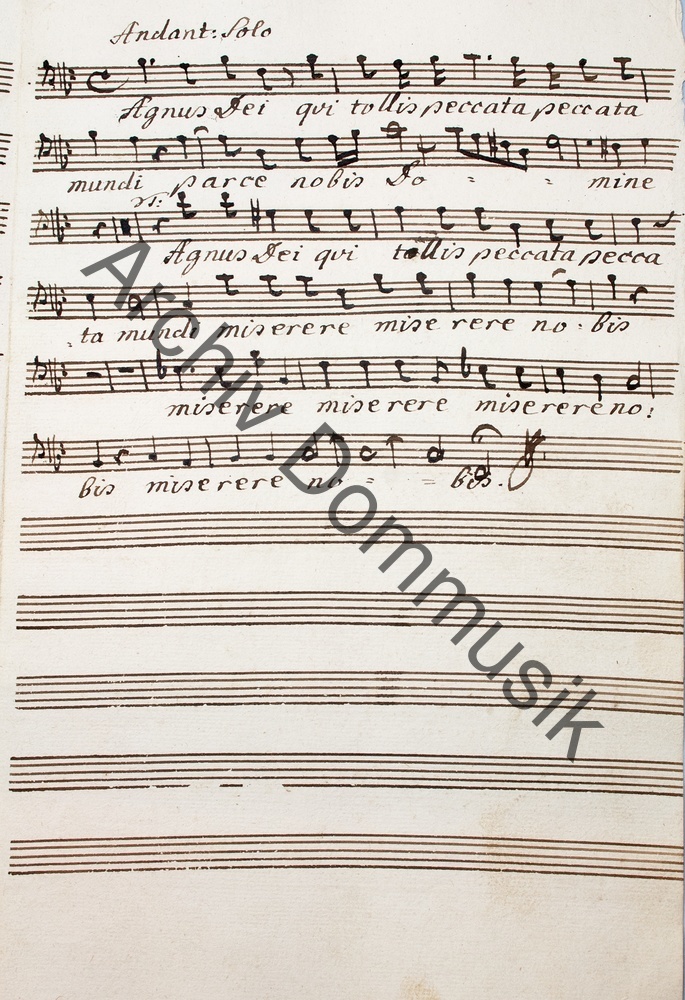 Andant: Solo
Agnus Dei qui tollis peccata peccata
mundi parce nobis Do = = mine
Agnus Dei qui tollis peccata pecca
= ta mundi miserere miserere no = bis
miserere miserere miserere no =
bis miserere no = = bis.
Archiv Dommusik